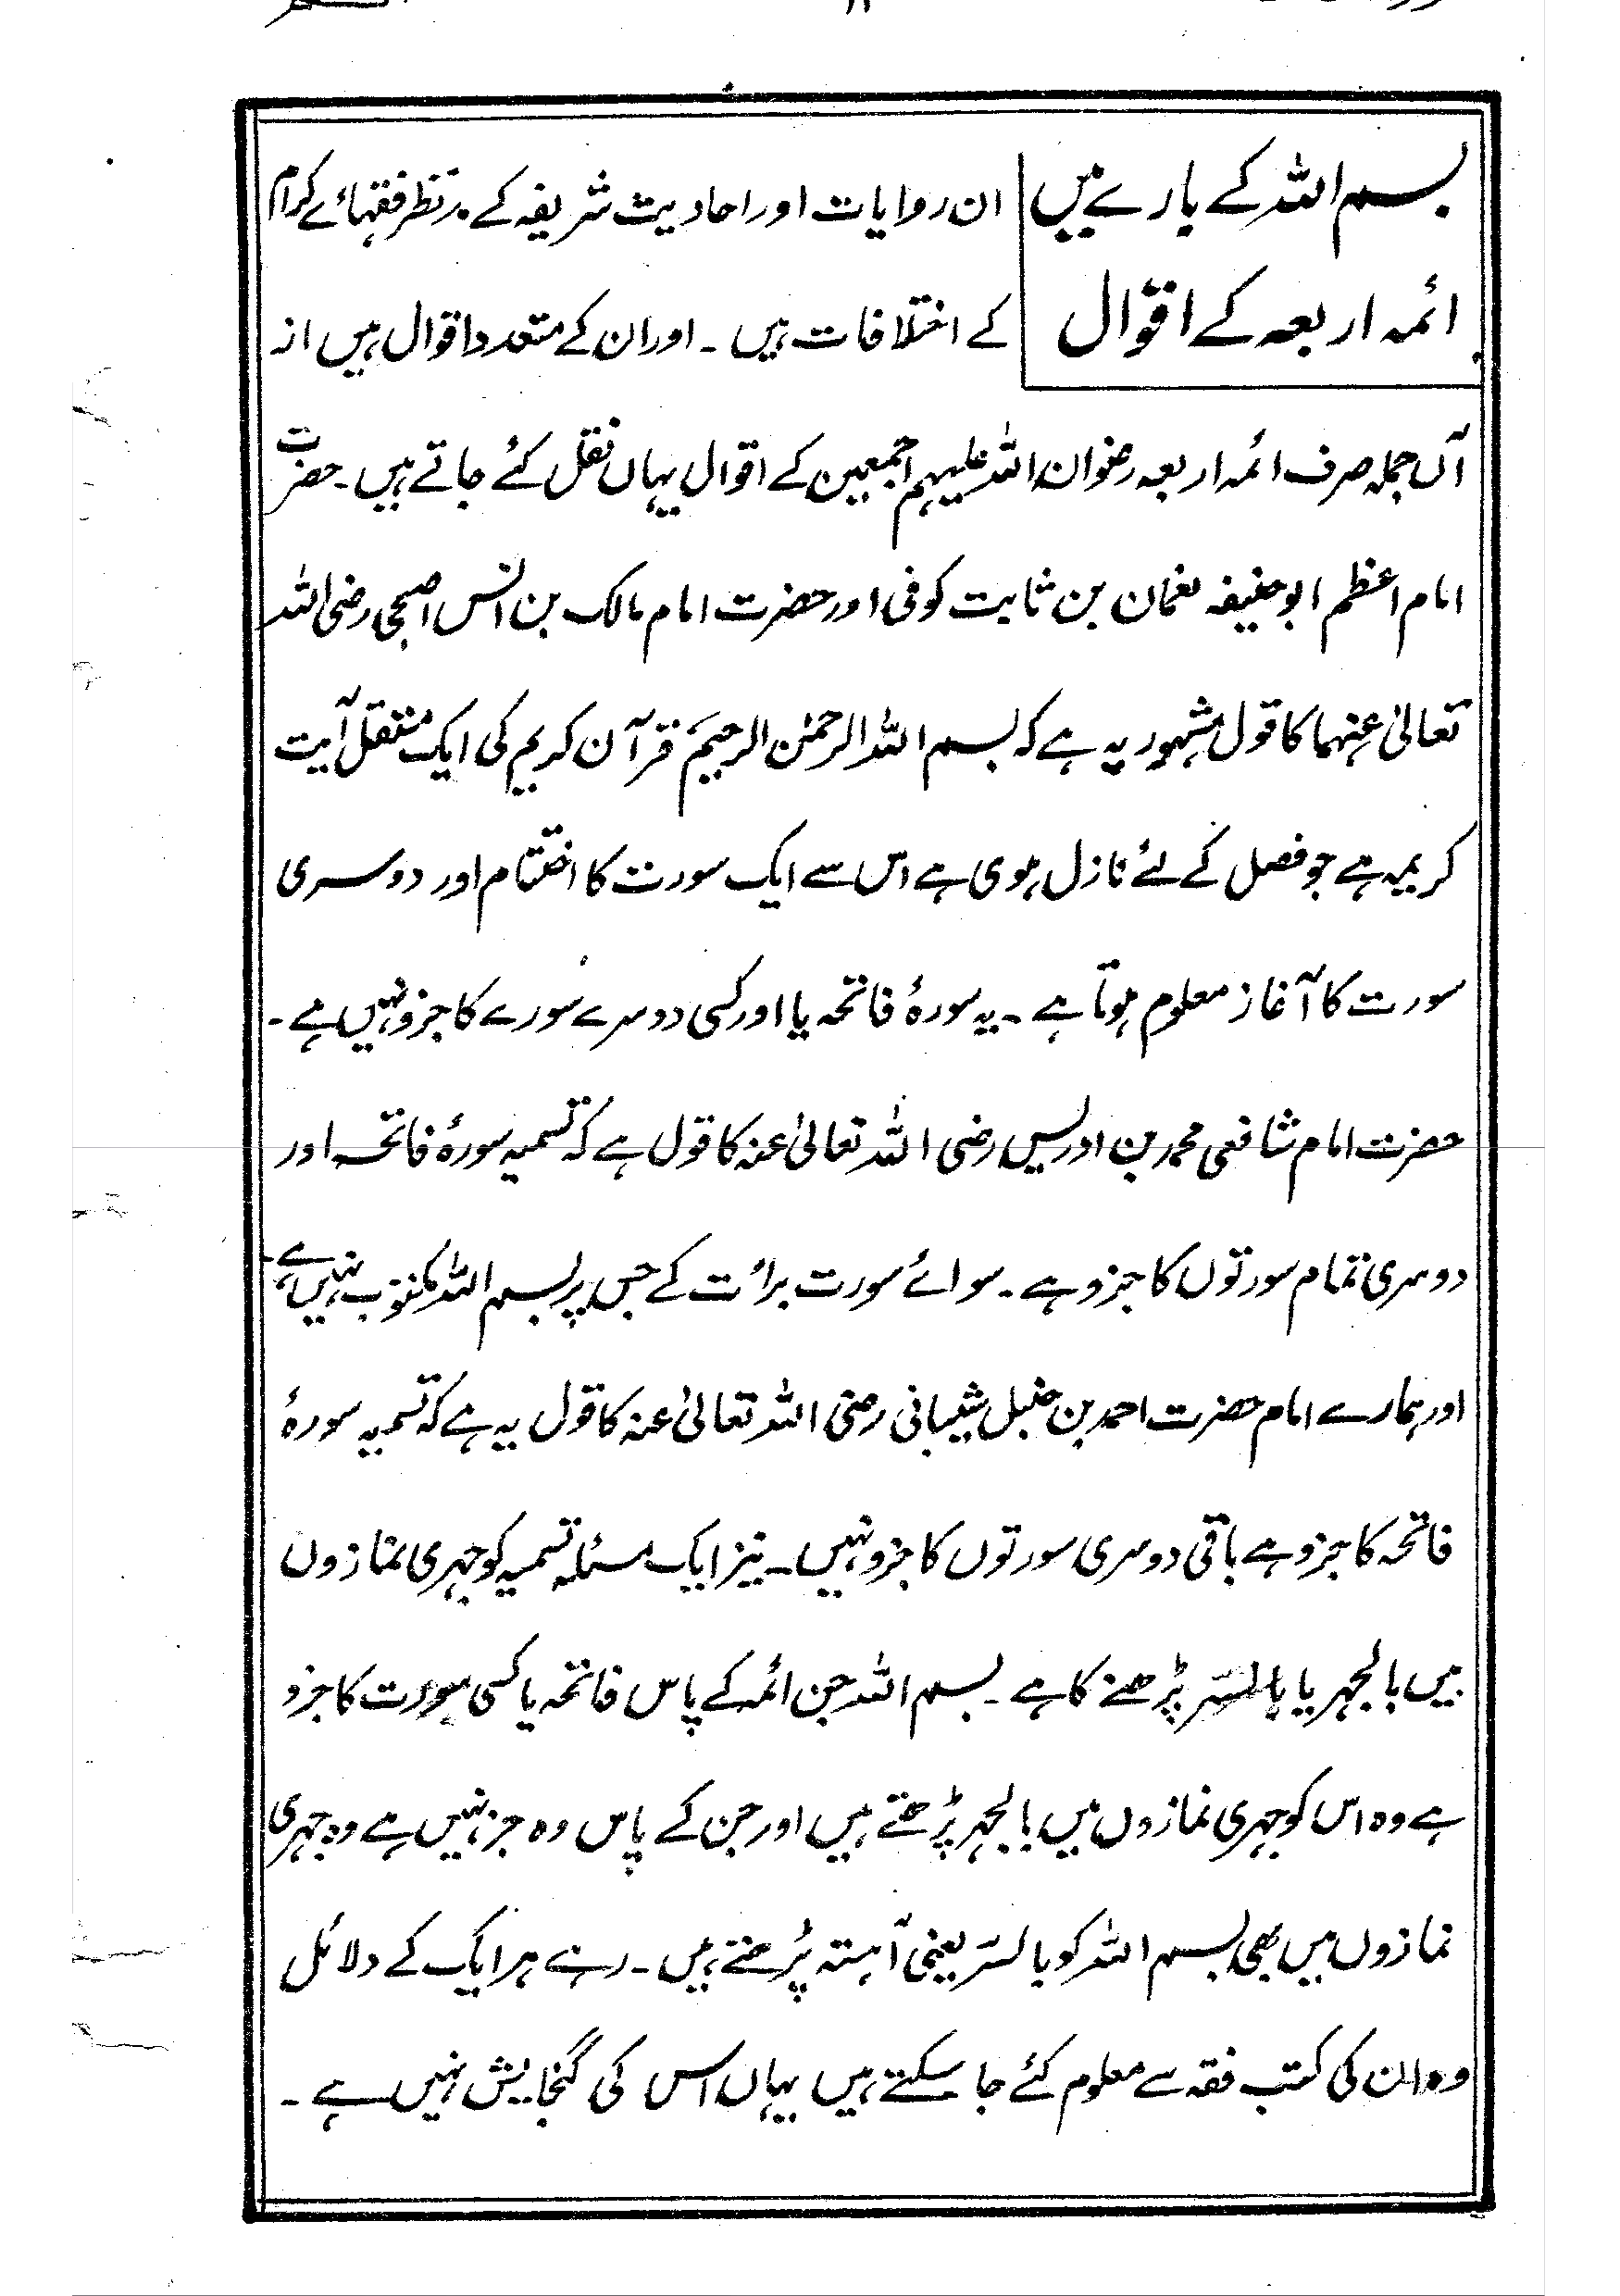 بسم اللہ کے بارے میں
ائمہ اربعہ کے اقوال
ان روایات اور احادیث شریفہ کے مدنظر فقہائے کرام
کے اختلافات ہیں ۔ اور ان کے متعدد اقوال ہیں از
آں جملہ صرف ائمہ اربعہ رضوان اللہ علیہم اجمعین کے اقوال یہاں نقل کئے جاتے ہیں ۔ حضرت
امام اعظم ابو حنیفہ نعمان بن ثابت کوفی اور حضرت امام مالک بن انس اصبحی رضی اللہ
تعالیٰ عنہما کا قول مشہور یہ ہے کہ بسم اللہ الرحمٰن الرحیم قرآن کریم کی ایک مستقل آیت
کریمہ ہے جو فصل کے لئے نازل ہوی ہے اس سے ایک سورت کا اختتام اور دوسری
سورت کا آغاز معلوم ہوتا ہے ۔ یہ سورۂ فاتحہ یا اور کسی دوسرے سورے کا جزو نہیں ہے ۔
حضرت امام شافعی محمد بن ادریس رضی اللہ تعالیٰ عنہ کا قول ہے کہ تسمیہ سورۂ فاتحہ اور
دوسری تمام سورتوں کا جزو ہے ۔ سوائے سورت برأت کے جس پر بسم اللہ مکتوب نہیں ہے ۔
اور ہمارے امام حضرت احمد بن حنبل شیبانی رضی اللہ تعالیٰ عنہ کا قول یہ ہے کہ تسمیہ سورۂ
فاتحہ کا جزو ہے باقی دوسری سورتوں کا جزو نہیں ۔ نیز ایک مسئلہ تسمیہ کو جہری نمازوں
میں بالجہر یا بالسّر پڑھنے کا ہے ۔ بسم اللہ جن ائمہ کے پاس فاتحہ یا کسی سورت کا جزو
ہے وہ اس کو جہری نمازوں میں بالجہر پڑھتے ہیں اور جن کے پاس وہ جز نہیں ہے وہ جہری
نمازوں میں بھی بسم اللہ کو بالسّر یعنی آہستہ پڑھتے ہیں ۔ رہے ہر ایک کے دلائل
وہ ان کی کتب فقہ سے معلوم کئے جا سکتے ہیں یہاں اس کی گنجایش نہیں ہے ۔